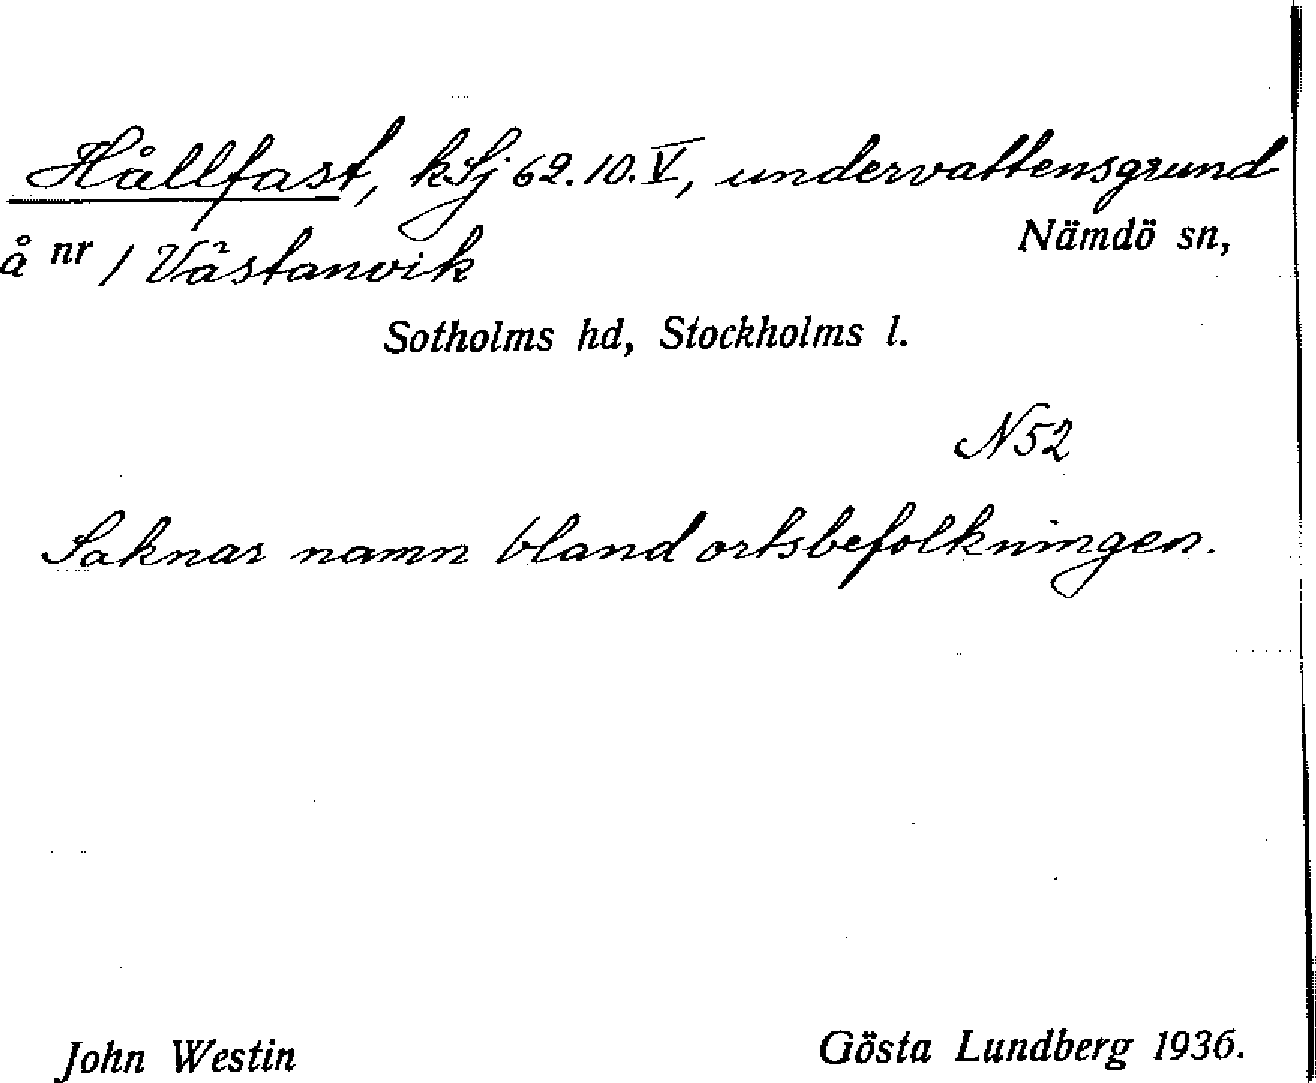 Hållfast, kSj 62.10.V, undervattensgrund
Nämdö sn,
å nr 1 Västanvik
Sotholms hd, Stockholms l.
N52
Saknar namn bland ortsbefolkningen.
John Westin
Gösta Lundberg 1936.